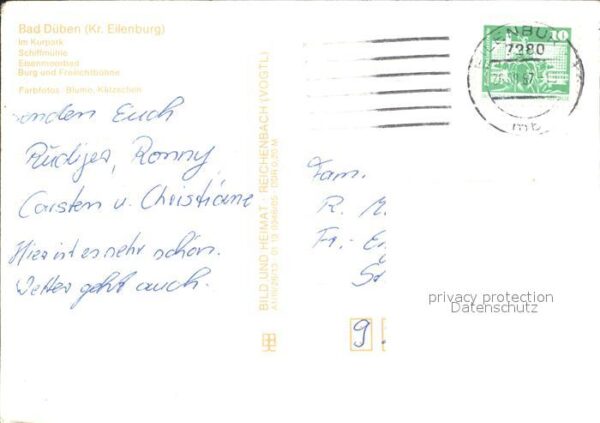 Bad Düben (Kr. Eilenburg)
Im Kurpark
Schiffmühle
Eisenmoorbad
Burg und Freilichtbühne
Farbfotos: Blume, Kätzschen
senden Euch
Rüdiger, Ronny,
Carsten u. Christiane
Hier ist es sehr schön.
Wetter geht auch.
BILD UND HEIMAT · REICHENBACH (VOGTL)
DDR 0,20 M
10
7280
Fam.
R. M
Fr.-E
privacy protection
Datenschutz
9